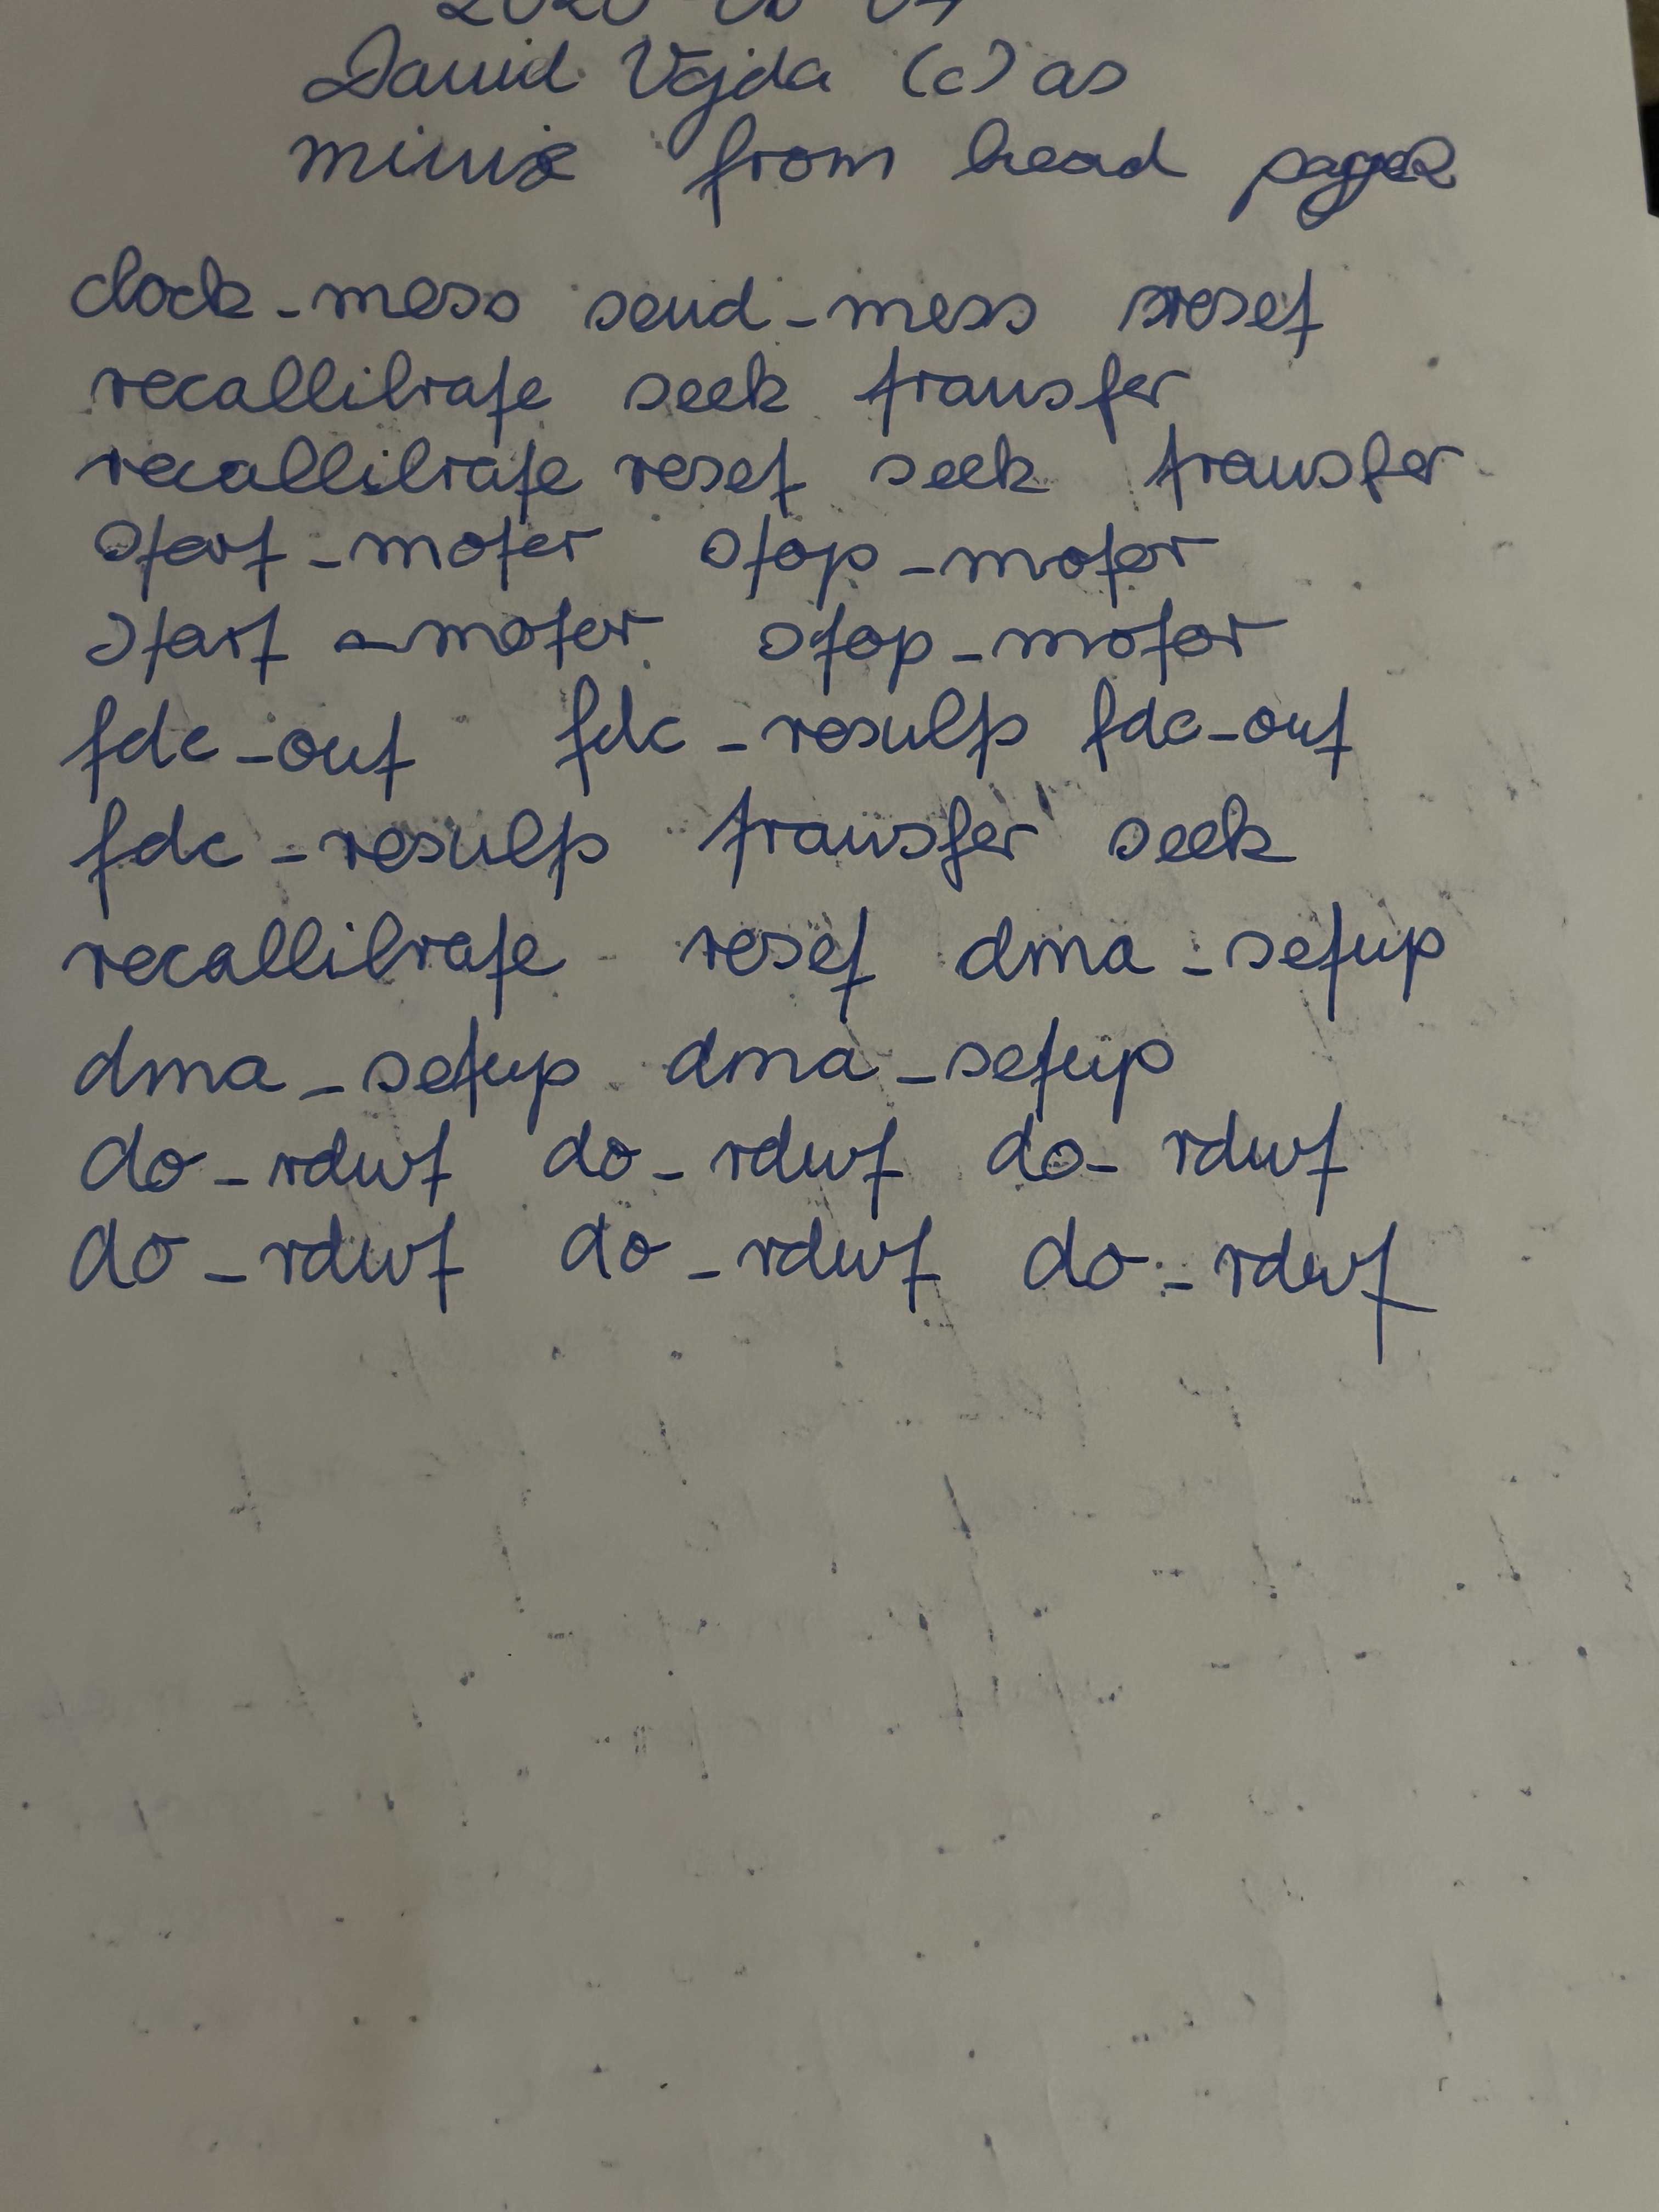 David Vajda (c) as
minix from head page 2
clock_mess send_mess reset
recallibrate seek transfer
recallibrate reset seek transfer
start_moter stop_moter
start _moter stop_motor
fdc_out fdc_results fdc_out
fdc_results transfer seek
recallibrate reset dma_setup
dma_setup dma_setup
do_rdwt do_rdwt do_rdwt
do_rdwt do_rdwt do_rdwt